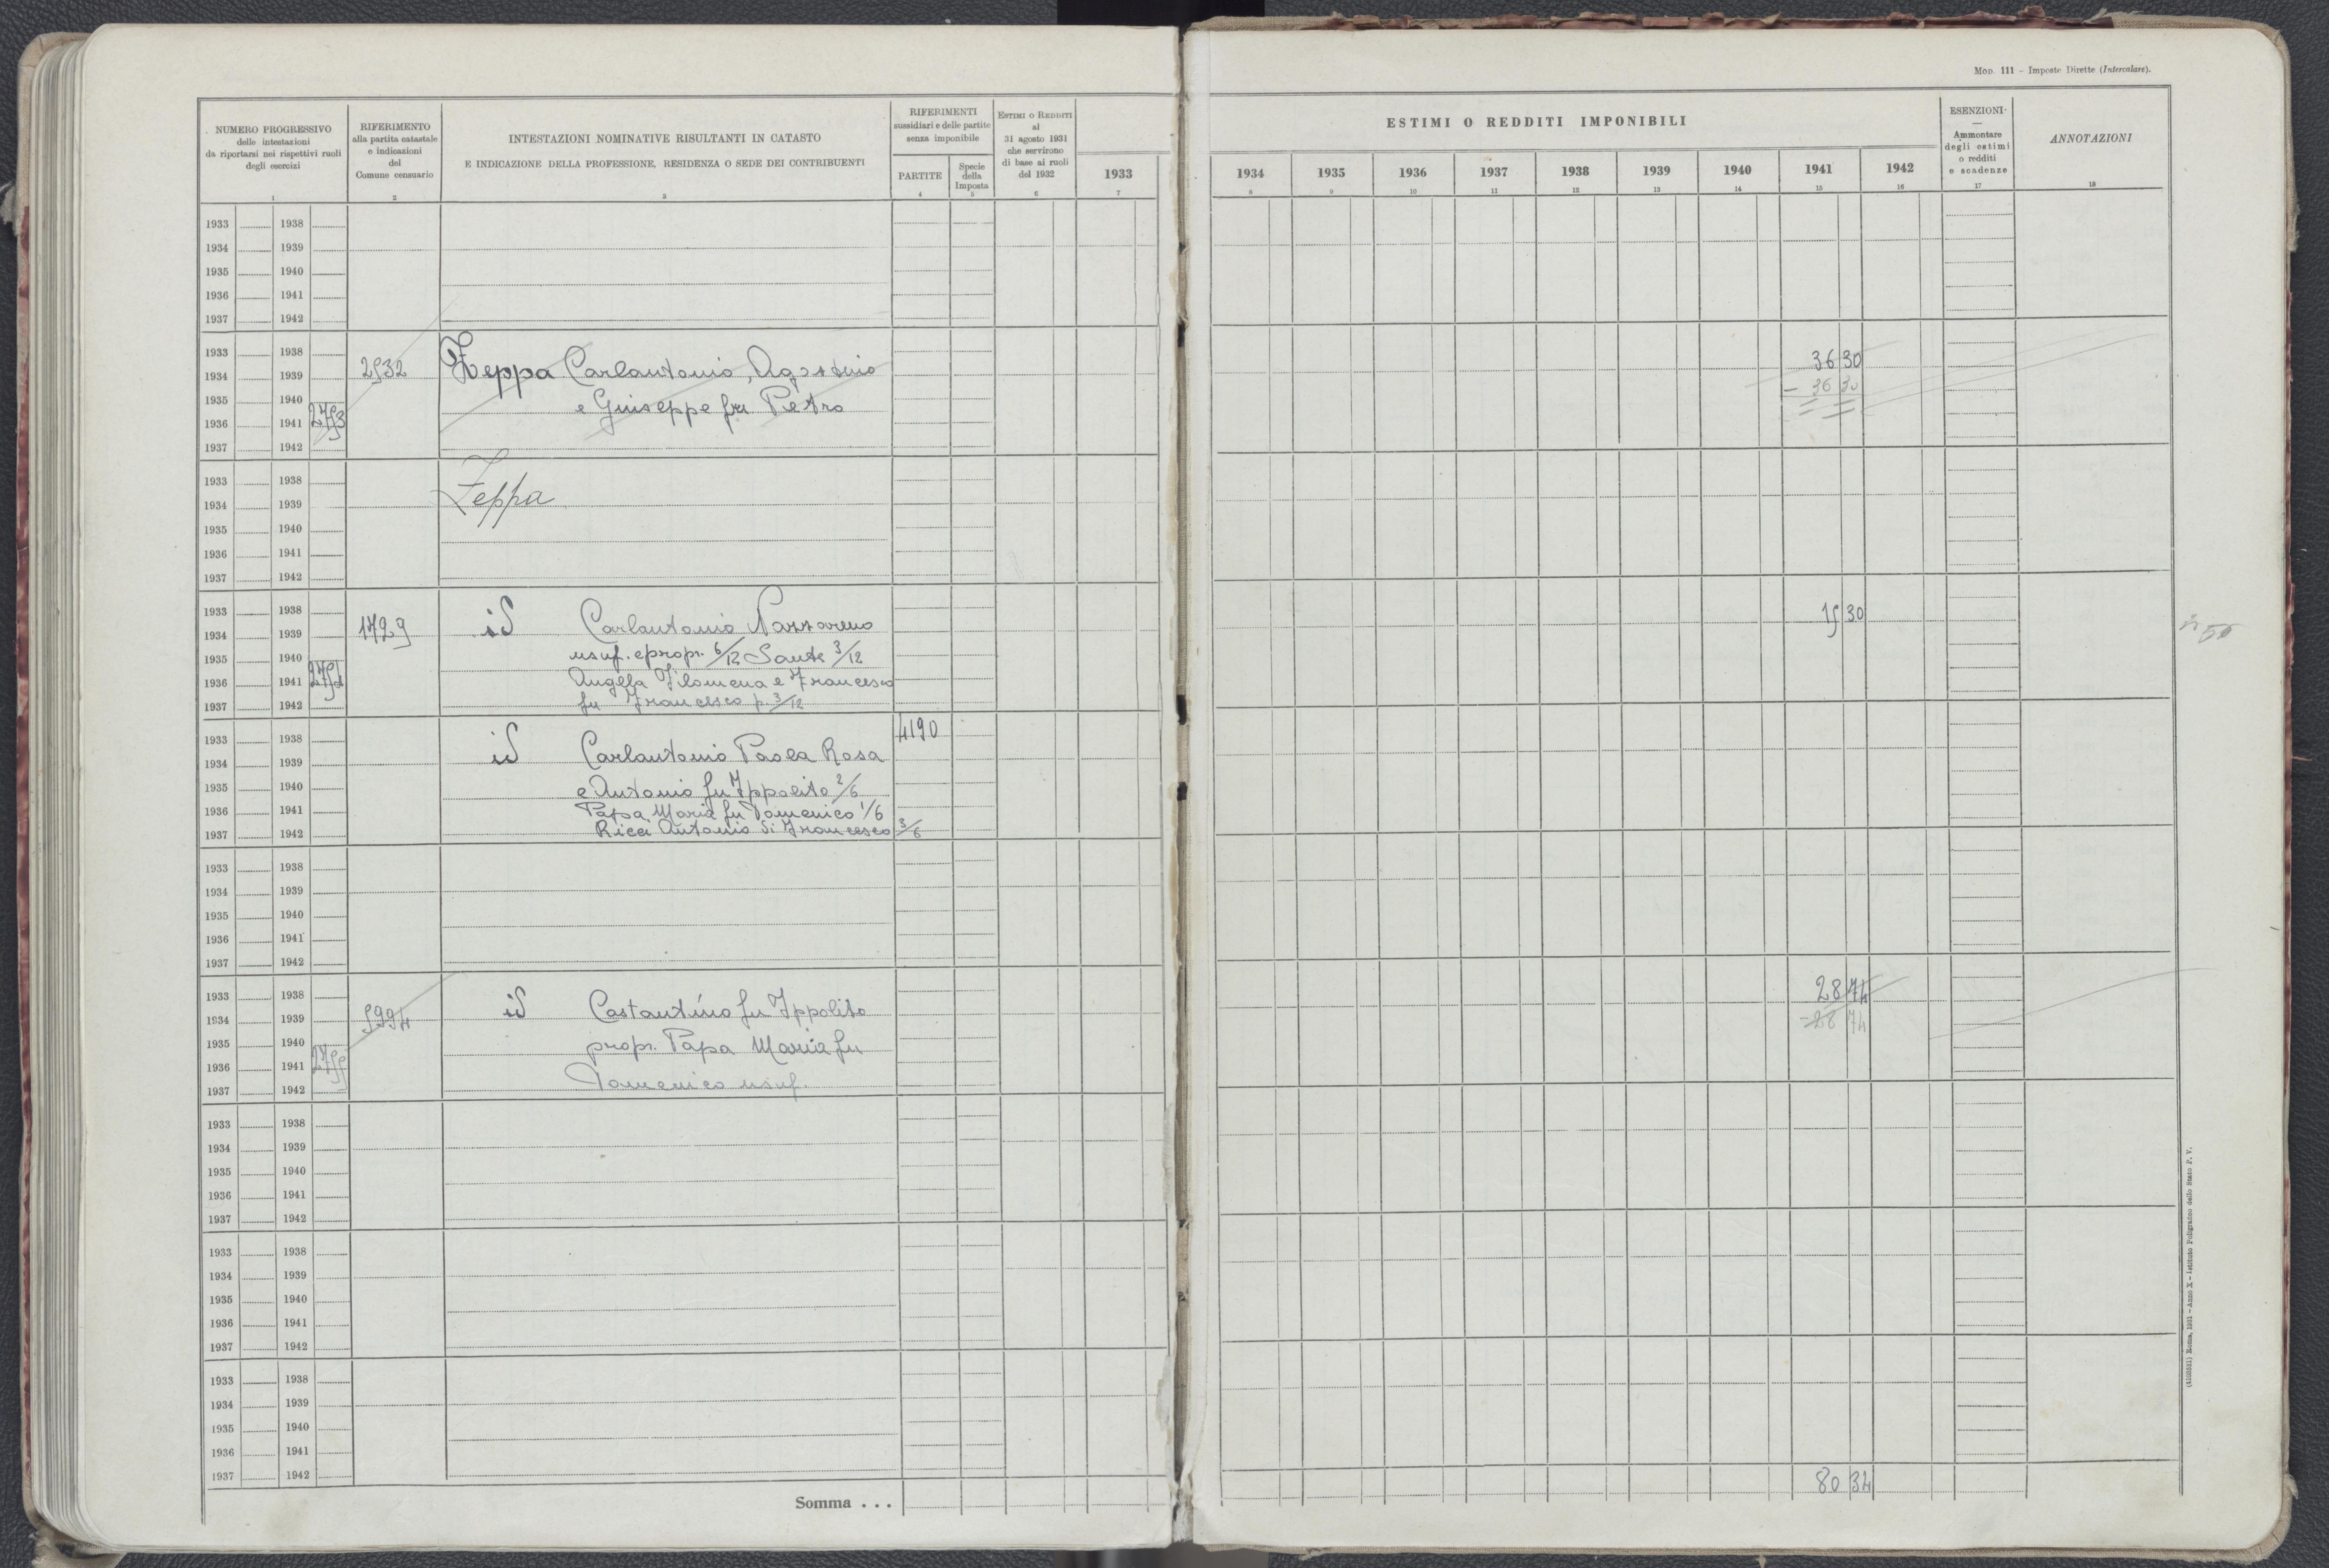 Mod. 111 – Imposte Dirette (Intercalare).
NUMERO PROGRESSIVO
delle intestazioni
da riportarsi nei rispettivi ruoli
degli esercizi
1
RIFERIMENTO
alla partita catastale
e indicazioni
del
Comune censuario
2
INTESTAZIONI NOMINATIVE RISULTANTI IN CATASTO
E INDICAZIONE DELLA PROFESSIONE, RESIDENZA O SEDE DEI CONTRIBUENTI
3
RIFERIMENTI
sussidiari e delle partite
senza imponibile
PARTITE
4
Specie
della
Imposta
5
ESTIMI O REDDITI
al
31 agosto 1931
che servirono
di base ai ruoli
del 1932
6
ESTIMI O REDDITI IMPONIBILI
1933 1934 1935 1936 1937 1938 1939 1940 1941 1942
7 8 9 10 11 12 13 14 15 16
ESENZIONI
—
Ammontare
degli estimi
o redditi
e scadenze
17
ANNOTAZIONI
18
1933 1938
1934 1939
1935 1940
1936 1941
1937 1942
1933 1938 36 30
1934 1939 2532 Zeppa Carlantonio, Agostino
1935 1940 e Giuseppe fu Pietro – 36 30
1936 1941 2753
1937 1942
1933 1938
1934 1939 Zeppa
1935 1940
1936 1941
1937 1942
1933 1938 15 30
1934 1939 1729 id Carlantonio Nazzareno
1935 1940 usuf. e propr. 6/12 Sante 3/12
1936 1941 Angela Filomena e Francesco
1937 1942 fu Francesco p. 3/12
1933 1938 4190
1934 1939 id Carlantonio Paola Rosa
1935 1940 e Antonio fu Ippolito 2/6
1936 1941 Papa Maria fu Domenico 1/6
1937 1942 Ricci Antonio di Francesco 3/6
1933 1938
1934 1939
1935 1940
1936 1941
1937 1942
1933 1938 28 74
1934 1939 5994 id Costantino fu Ippolito – 28 74
1935 1940 propr. Papa Maria fu
1936 1941 2755
1937 1942 Domenico usuf.
1933 1938
1934 1939
1935 1940
1936 1941
1937 1942
1933 1938
1934 1939
1935 1940
1936 1941
1937 1942
1933 1938
1934 1939
1935 1940
1936 1941
1937 1942
Somma . . . 80 34
Roma, 1931 – Anno X – Istituto Poligrafico dello Stato P. V.